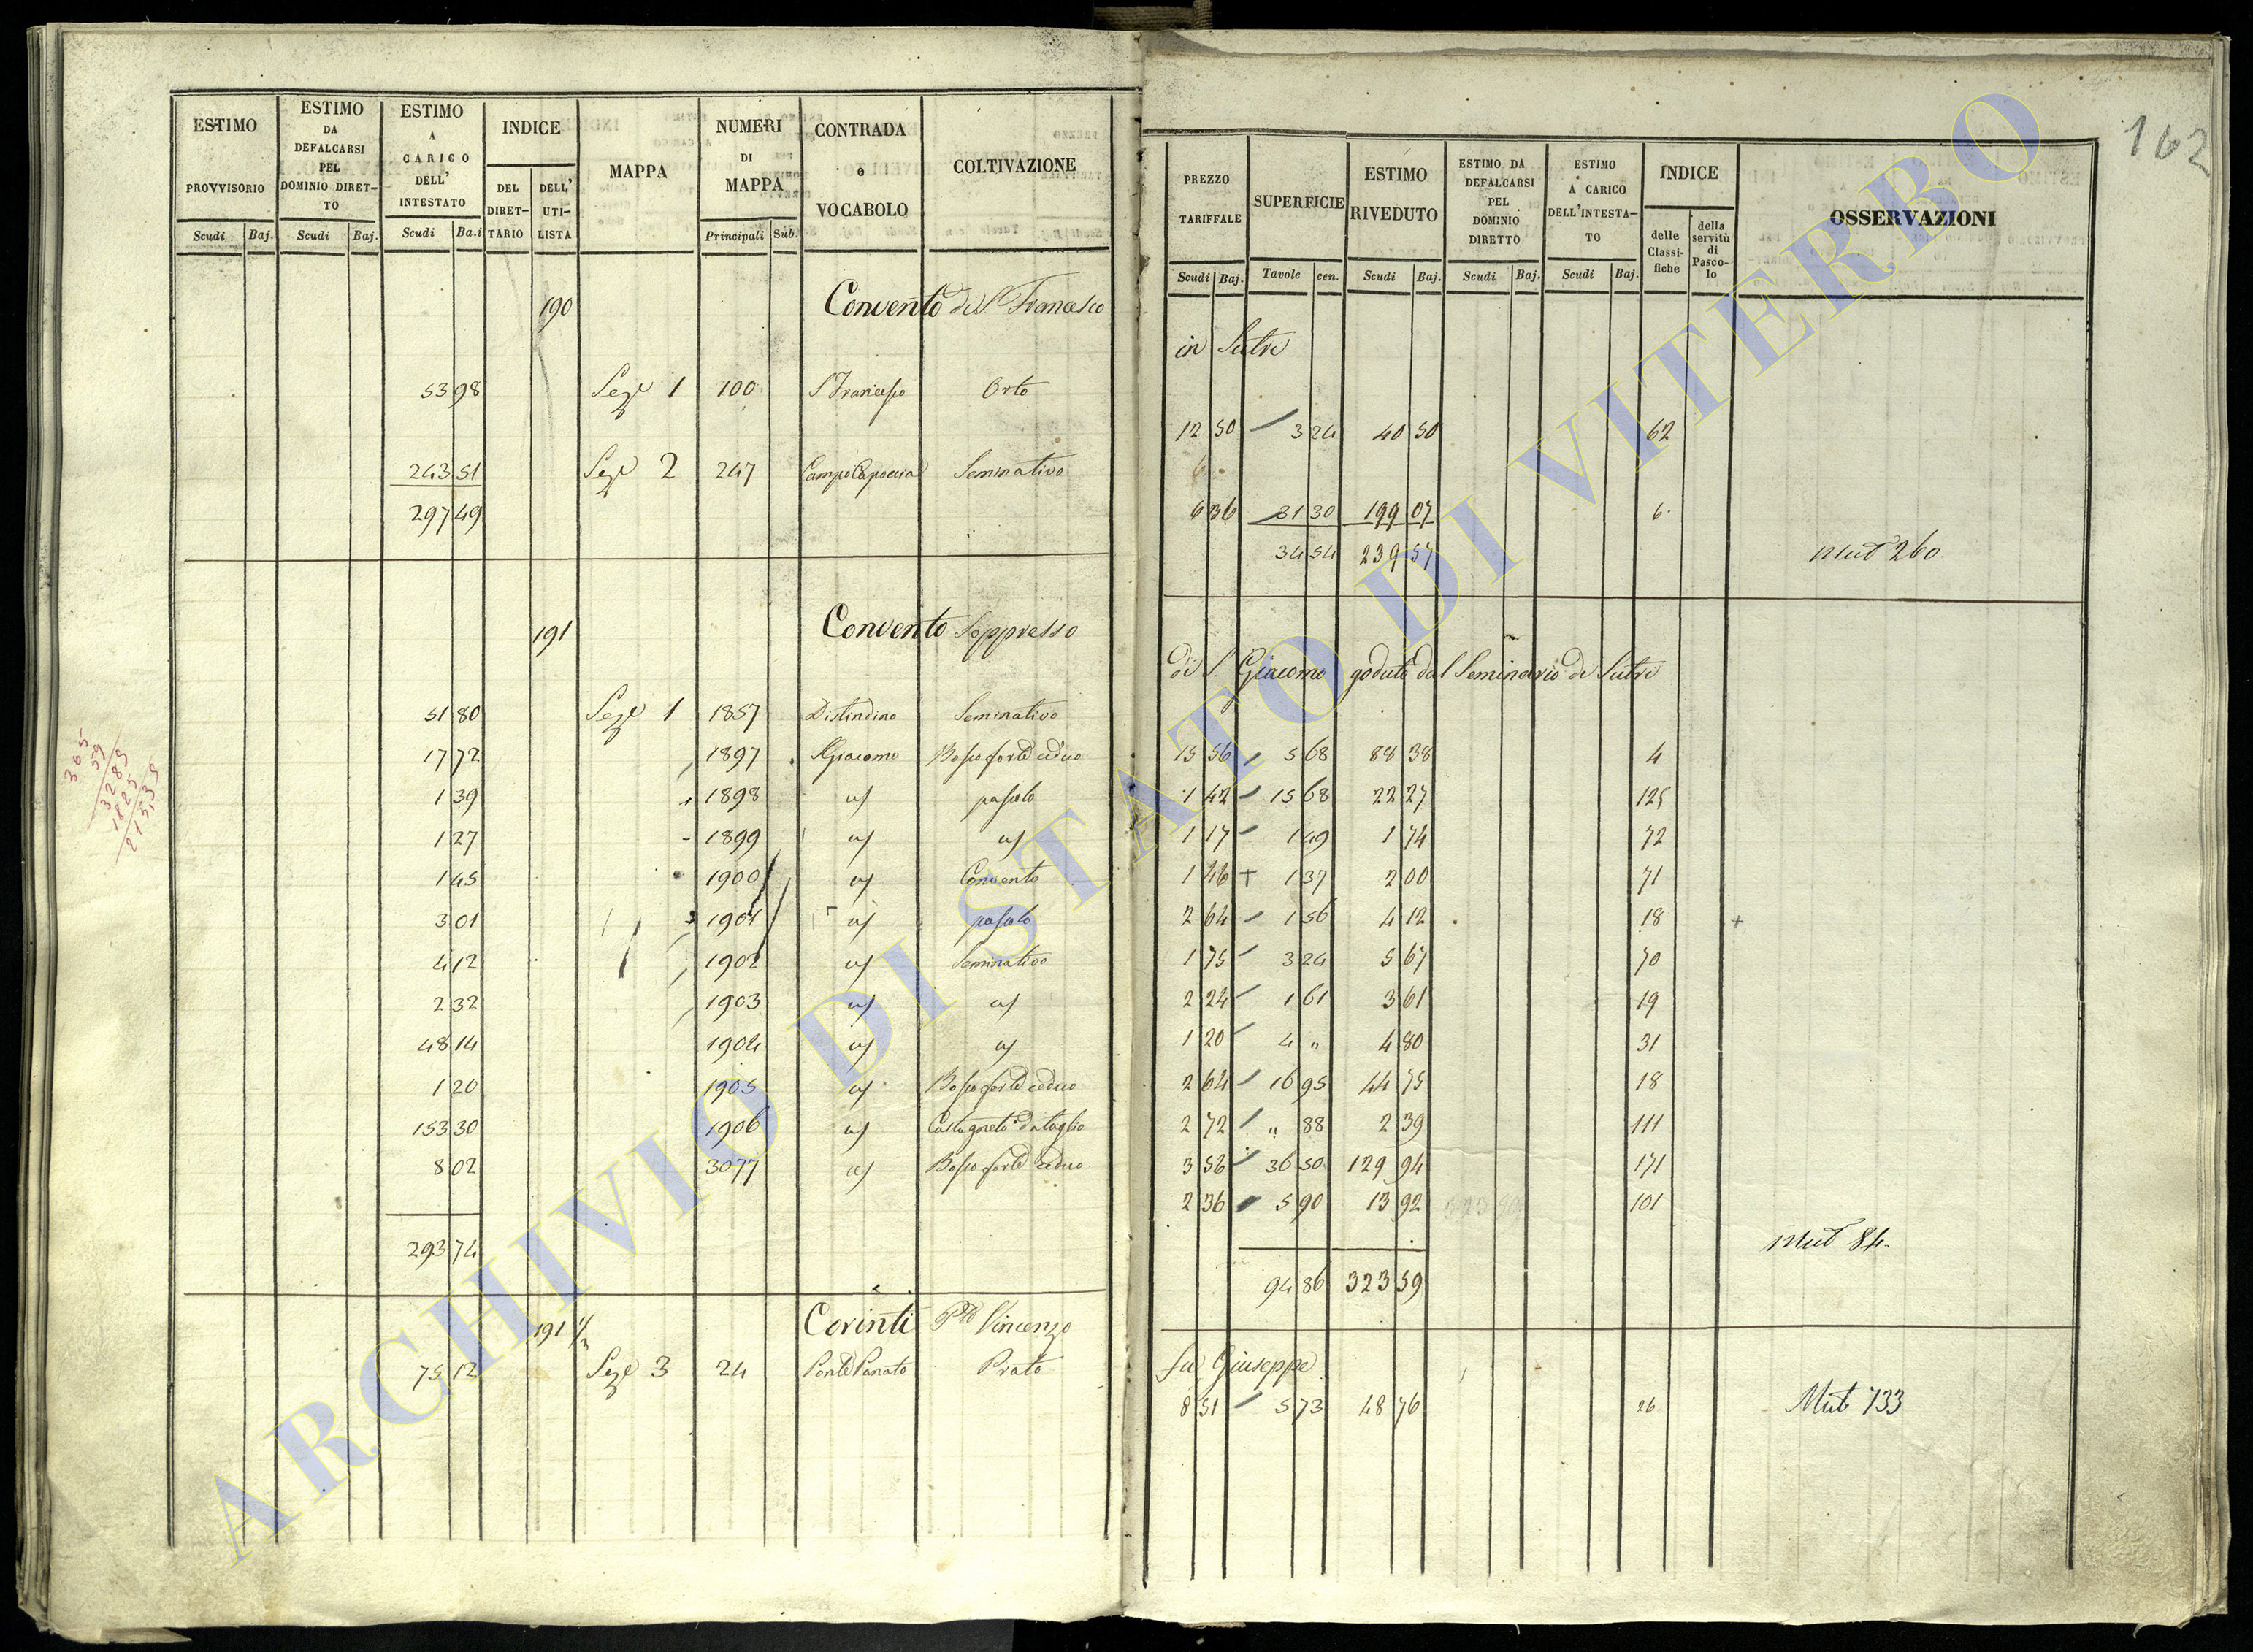 162
ESTIMO PROVVISORIO Scudi Baj.
ESTIMO DA DEFALCARSI PEL DOMINIO DIRET-TO Scudi Baj.
ESTIMO A CARICO DELL' INTESTATO Scudi Ba.i
INDICE DEL DIRET-TARIO DELL' UTI-LISTA
MAPPA
NUMERI DI MAPPA Principali Sub.
CONTRADA o VOCABOLO
COLTIVAZIONE
190 Convento di S Francesco
53 98 Seze 1 100 S Francesco Orto
243 51 Seze 2 247 Seminativo
297 49
191 Convento Soppresso
51 80 Seze 1 1857 Distindino Seminativo
17 72 1897 S Giacomo Bosco forte ceduo
1 39 1898 id pascolo
1 27 1899 id id
1 45 1900 id Convento
3 01 1901 id pascolo
4 12 1902 id Seminativo
2 32 1903 id id
48 14 1904 id id
1 20 1905 id Bosco forte ceduo
153 30 1906 id Castagneto da taglio
8 02 3077 id Bosco forte ceduo
293 74
191 1/2 Corinti Vincenzo
75 12 Seze 3 24 Ponte Panato Prato
365
59
3285
1825
215,35
PREZZO TARIFFALE Scudi Baj.
SUPERFICIE Tavole cen.
ESTIMO RIVEDUTO Scudi Baj.
ESTIMO DA DEFALCARSI PEL DOMINIO DIRETTO Scudi Baj.
ESTIMO A CARICO DELL'INTESTA-TO Scudi Baj.
INDICE delle Classi-fiche della servitù di Pasco-lo
OSSERVAZIONI
in Sutri
12 50 3 24 40 50 62
6
6 36 31 30 199 07 6
34 54 239 57 Mut 260
di S. Giacomo goduto dal Seminario di Sutri
15 56 5 68 88 38 4
1 42 15 68 22 27 125
1 17 1 49 1 74 72
1 46 + 1 37 2 00 71
2 64 1 56 4 12 18 +
1 75 3 24 5 67 70
2 24 1 61 3 61 19
1 20 4 " 4 80 31
2 64 16 95 44 75 18
2 72 " 88 2 39 111
3 56 36 50 129 94 171
2 36 5 90 13 92 101
Mut 84
94 86 323 59
fu Giuseppe
8 51 5 73 48 76 26 Mut 733
ARCHIVIO DI STATO DI VITERBO